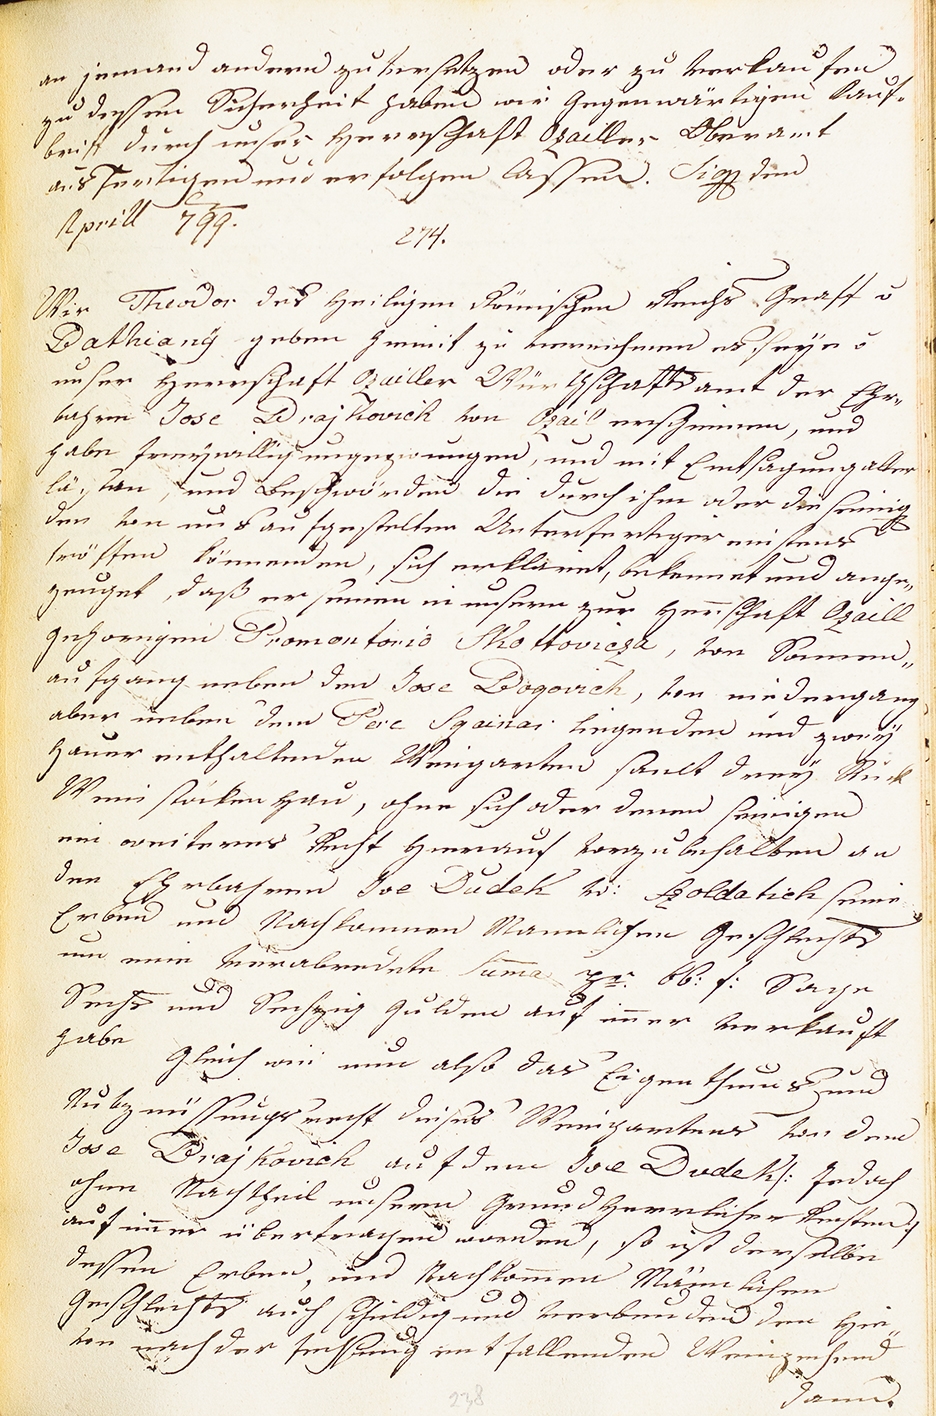 an jemand andern zu versetzen oder zu verkaufen
zu dessen Sicherheit haben wir gegenwärtigen Kauf-
briff durch unser Herrschaft Ozailler Oberamt
ausfertigen und erfolgen lassen. Sigg den
Aprill 799.
274.
Wir Theodor des Heiligen Römischen Reichs Graff v
Bathiany geben hiemit zu vernehmen es seye v
unser Herrschaft Ozailler Würthschaftsamt der Ehr-
bahre Jose Brajkovich von Ozail erschienen, und
habe freywillig ungezwungen, und mit Entsagung aller
und Beschwörden die durch ihm oder die seinig
den von uns aufgestelten Unterfertiger
tröffen könnenden, sich erkläret, bekennet und ange-
zeuget, daß er seinen in unsern zur Herrschaft Ozaill
gehörigen Promontorio Skottovicza, von Sonnen-
aufgang neben den Jose Bogovich, von niedergang
aber neben dem Pere Sgainar liegenden und zwey
Hauer enthaltenden Weingarten samt drey Stuck
Weinstöcken Hau, ohne sich oder denen seinigen
ein weiteres Recht hierauf vorzubehalten an
den Ehrbahren Ive Dudek v: Szoldatich seine
Erben und Nachkommen Mannlichen Geschlechts
um eine verabredete Summa pr: 66: f: Sage
Sechs und Sechzig Gulden auf immer verkauft
habe Gleich wie nun also das Eigenthums und
Nutznüssungsrecht dieses Weingartens von dem
Jose Brajkovich auf dem Ive Dudek /: jedoch
ohne Nachtheil unsern Grundherrlichen Rechten :/
auf immer übertragen worden, so ist derselbe
dessen Erben, und Nachkommen Männlichen
Geschlechts auch schuldig und verbunden den hie-
von nach der Fechsung entfallenden Weinzehend
dann.
238